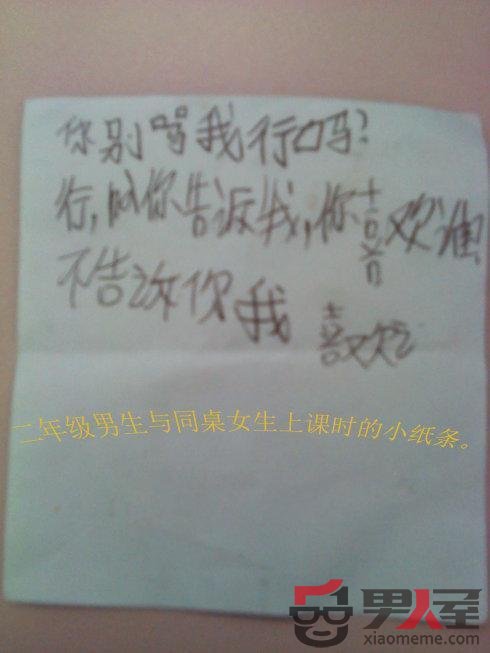 你别骂我行吗?
行,但你告返我,你喜欢谁
不告诉你我 喜欢
二年级男生与同桌女生上课时的小纸条。
男人屋
xiaomeme.com